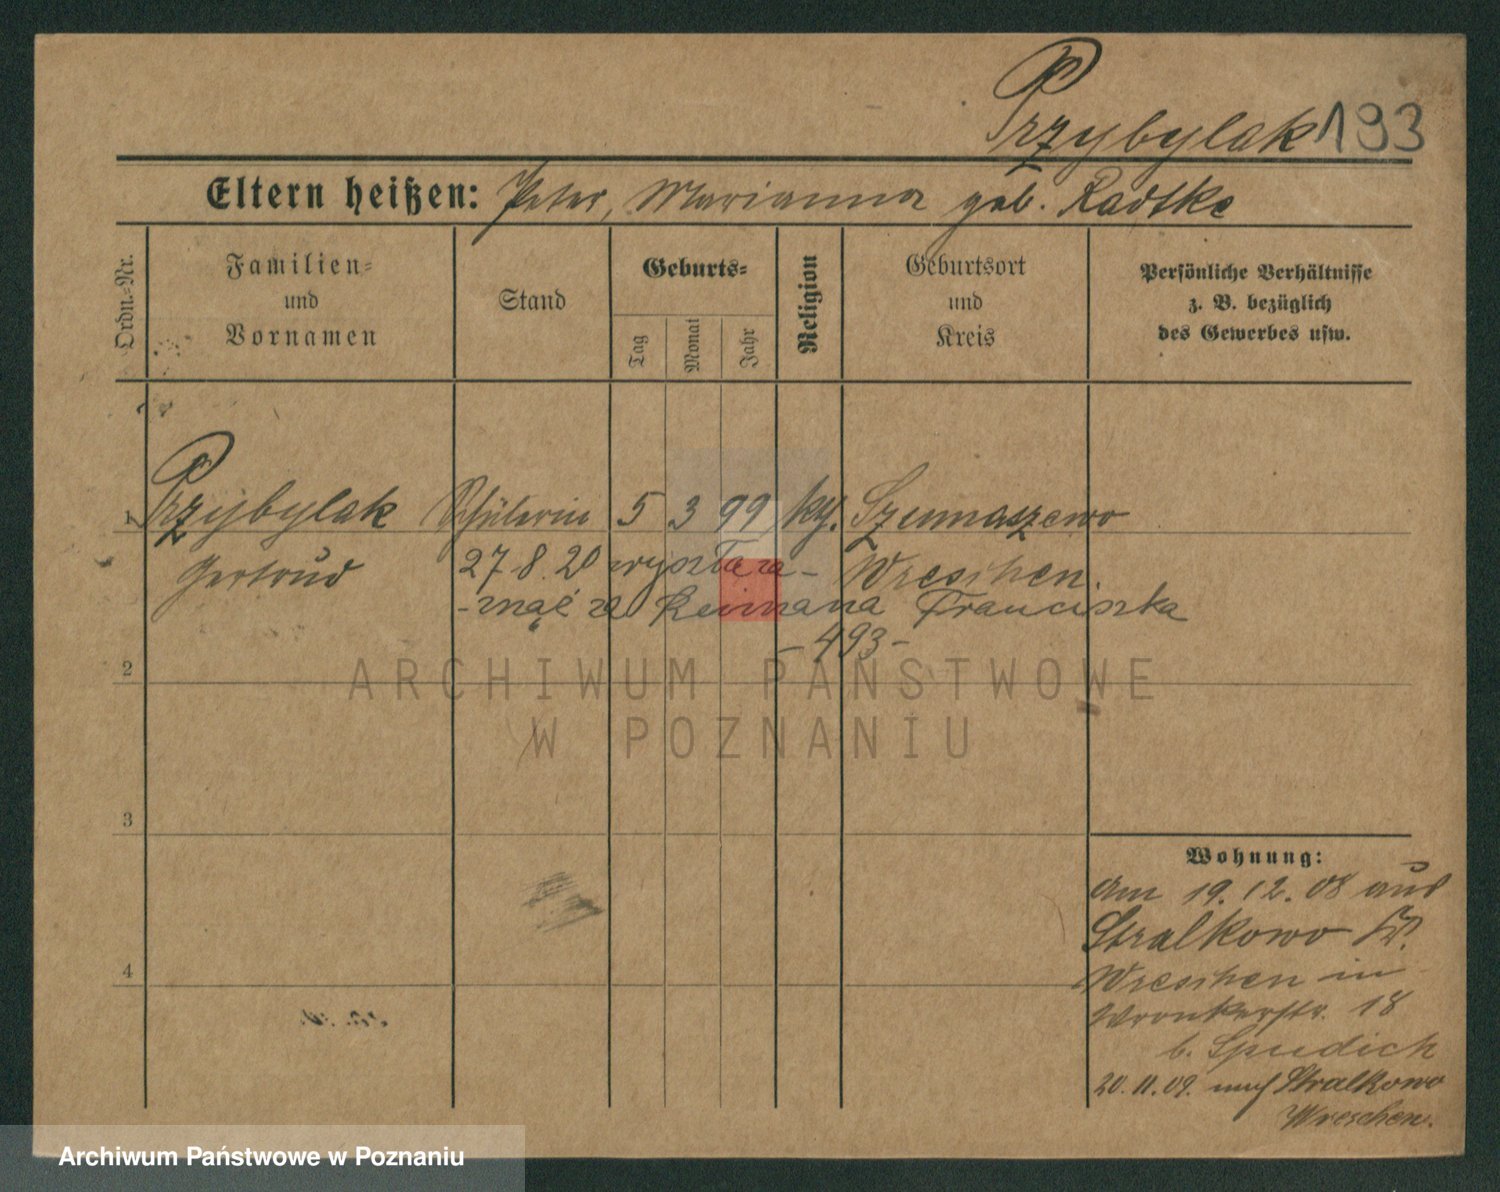 Przybylak 193
Eltern heißen: Peter, Marianna geb. Radtke
Ordn.=Nr.
Familien=
und
Vornamen
Stand
Geburts=
Tag
Monat
Jahr
Religion
Geburtsort
und
Kreis
Persönliche Verhältnisse
z. B. bezüglich
des Gewerbes usw.
1 Przybylak Schülerin 5 3 99 kg. Szemaszewo
Gertrud 27.8.20 wyszła za- Wreschen.
-mąż za Franciszka
-493-
2
3
4
Wohnung:
Am 19.12.08 aus
Stralkowo Kr.
Wreschen in
Wronkerstr. 18
b. Spudich
20.11.09. nach Stralkowo
Wreschen.
ARCHIWUM PAŃSTWOWE
W POZNANIU
Archiwum Państwowe w Poznaniu